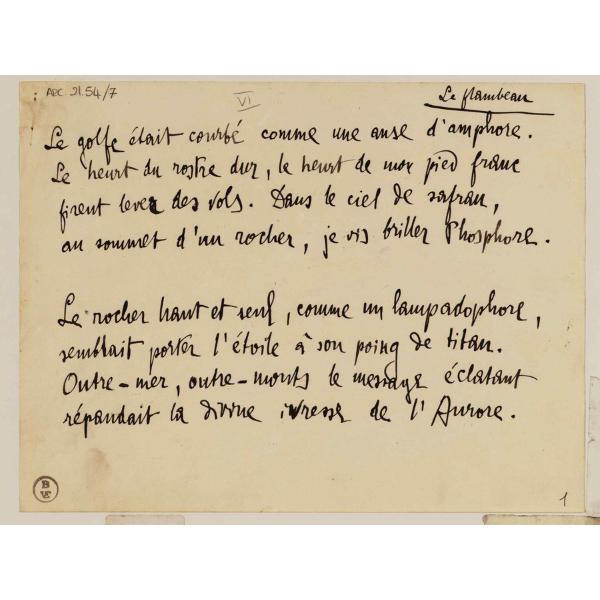 ABC. 21.54/7
VI
Le flambeau
Le golfe était courbé comme une anse d'amphore.
Le heurt du rostre dur, le heurt de mon pied franc
firent lever des vols. Dans le ciel de safran,
au sommet d'un rocher, je vis briller Phosphore.
Le rocher haut et seul, comme un lampadophore,
semblait porter l'étoile à son poing de titan.
Outre-mer, outre-monts le message éclatant
répandait la divine ivresse de l'Aurore.
1